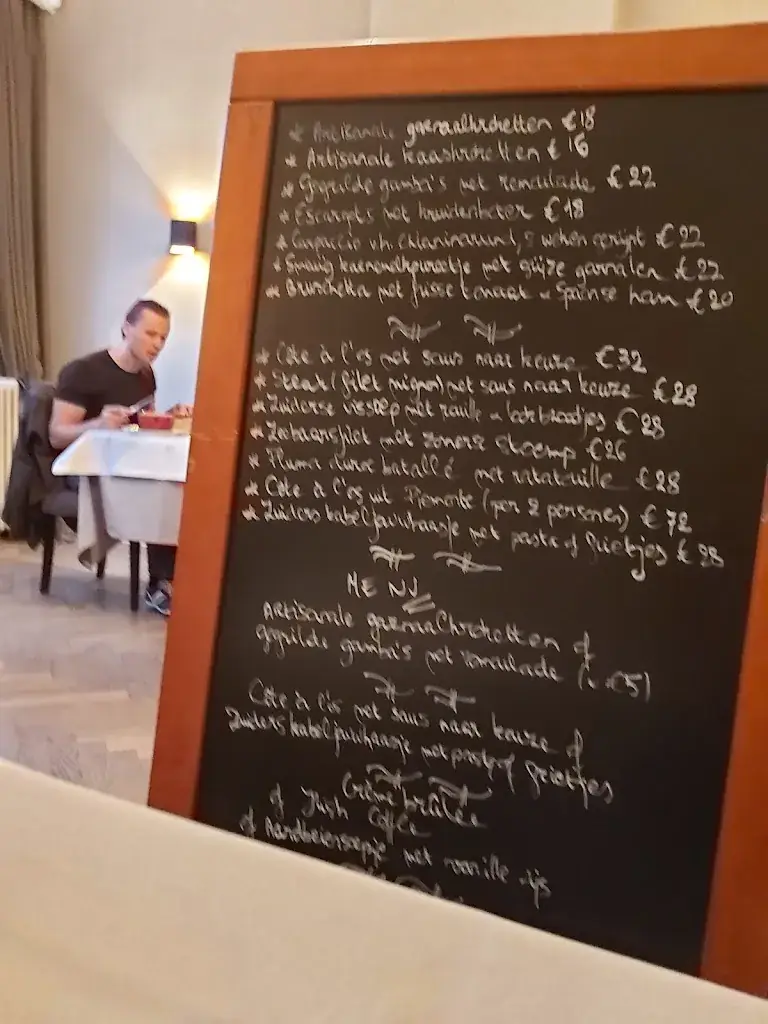 * Artisanale garnaalkroketten €18
* Artisanale kaaskroketten € 16
* Gegrilde gamba's met remoulade €22
* Escargots met kruidenboter €18
* Carpaccio v/h 2 weken gerijpt €22
* met grijze garnalen €22
* Bruschetta met frisse tomaat + Spaanse ham €20
* Côte à l'os met saus naar keuze €32
* Steak (filet mignon) met saus naar keuze €28
* Zuiderse vissoep met rouille + lookbroodjes €28
* Zeebaarsfilet met zomerse stoemp €26
* Pluma met ratatouille €28
* Côte à l'os uit Piemonte (per 2 personen) €72
* Zuiders kabeljauwhaasje met pasta of frietjes € 28
MENU
Artisanale garnaalkroketten of
gegrilde gamba's met remoulade (+ €5)
Côte à l'os met saus naar keuze of
Zuiders kabeljauwhaasje met pasta of frietjes
Crème brûlée
of Irish Coffee
of Aardbeiensoepje met vanille-ijs